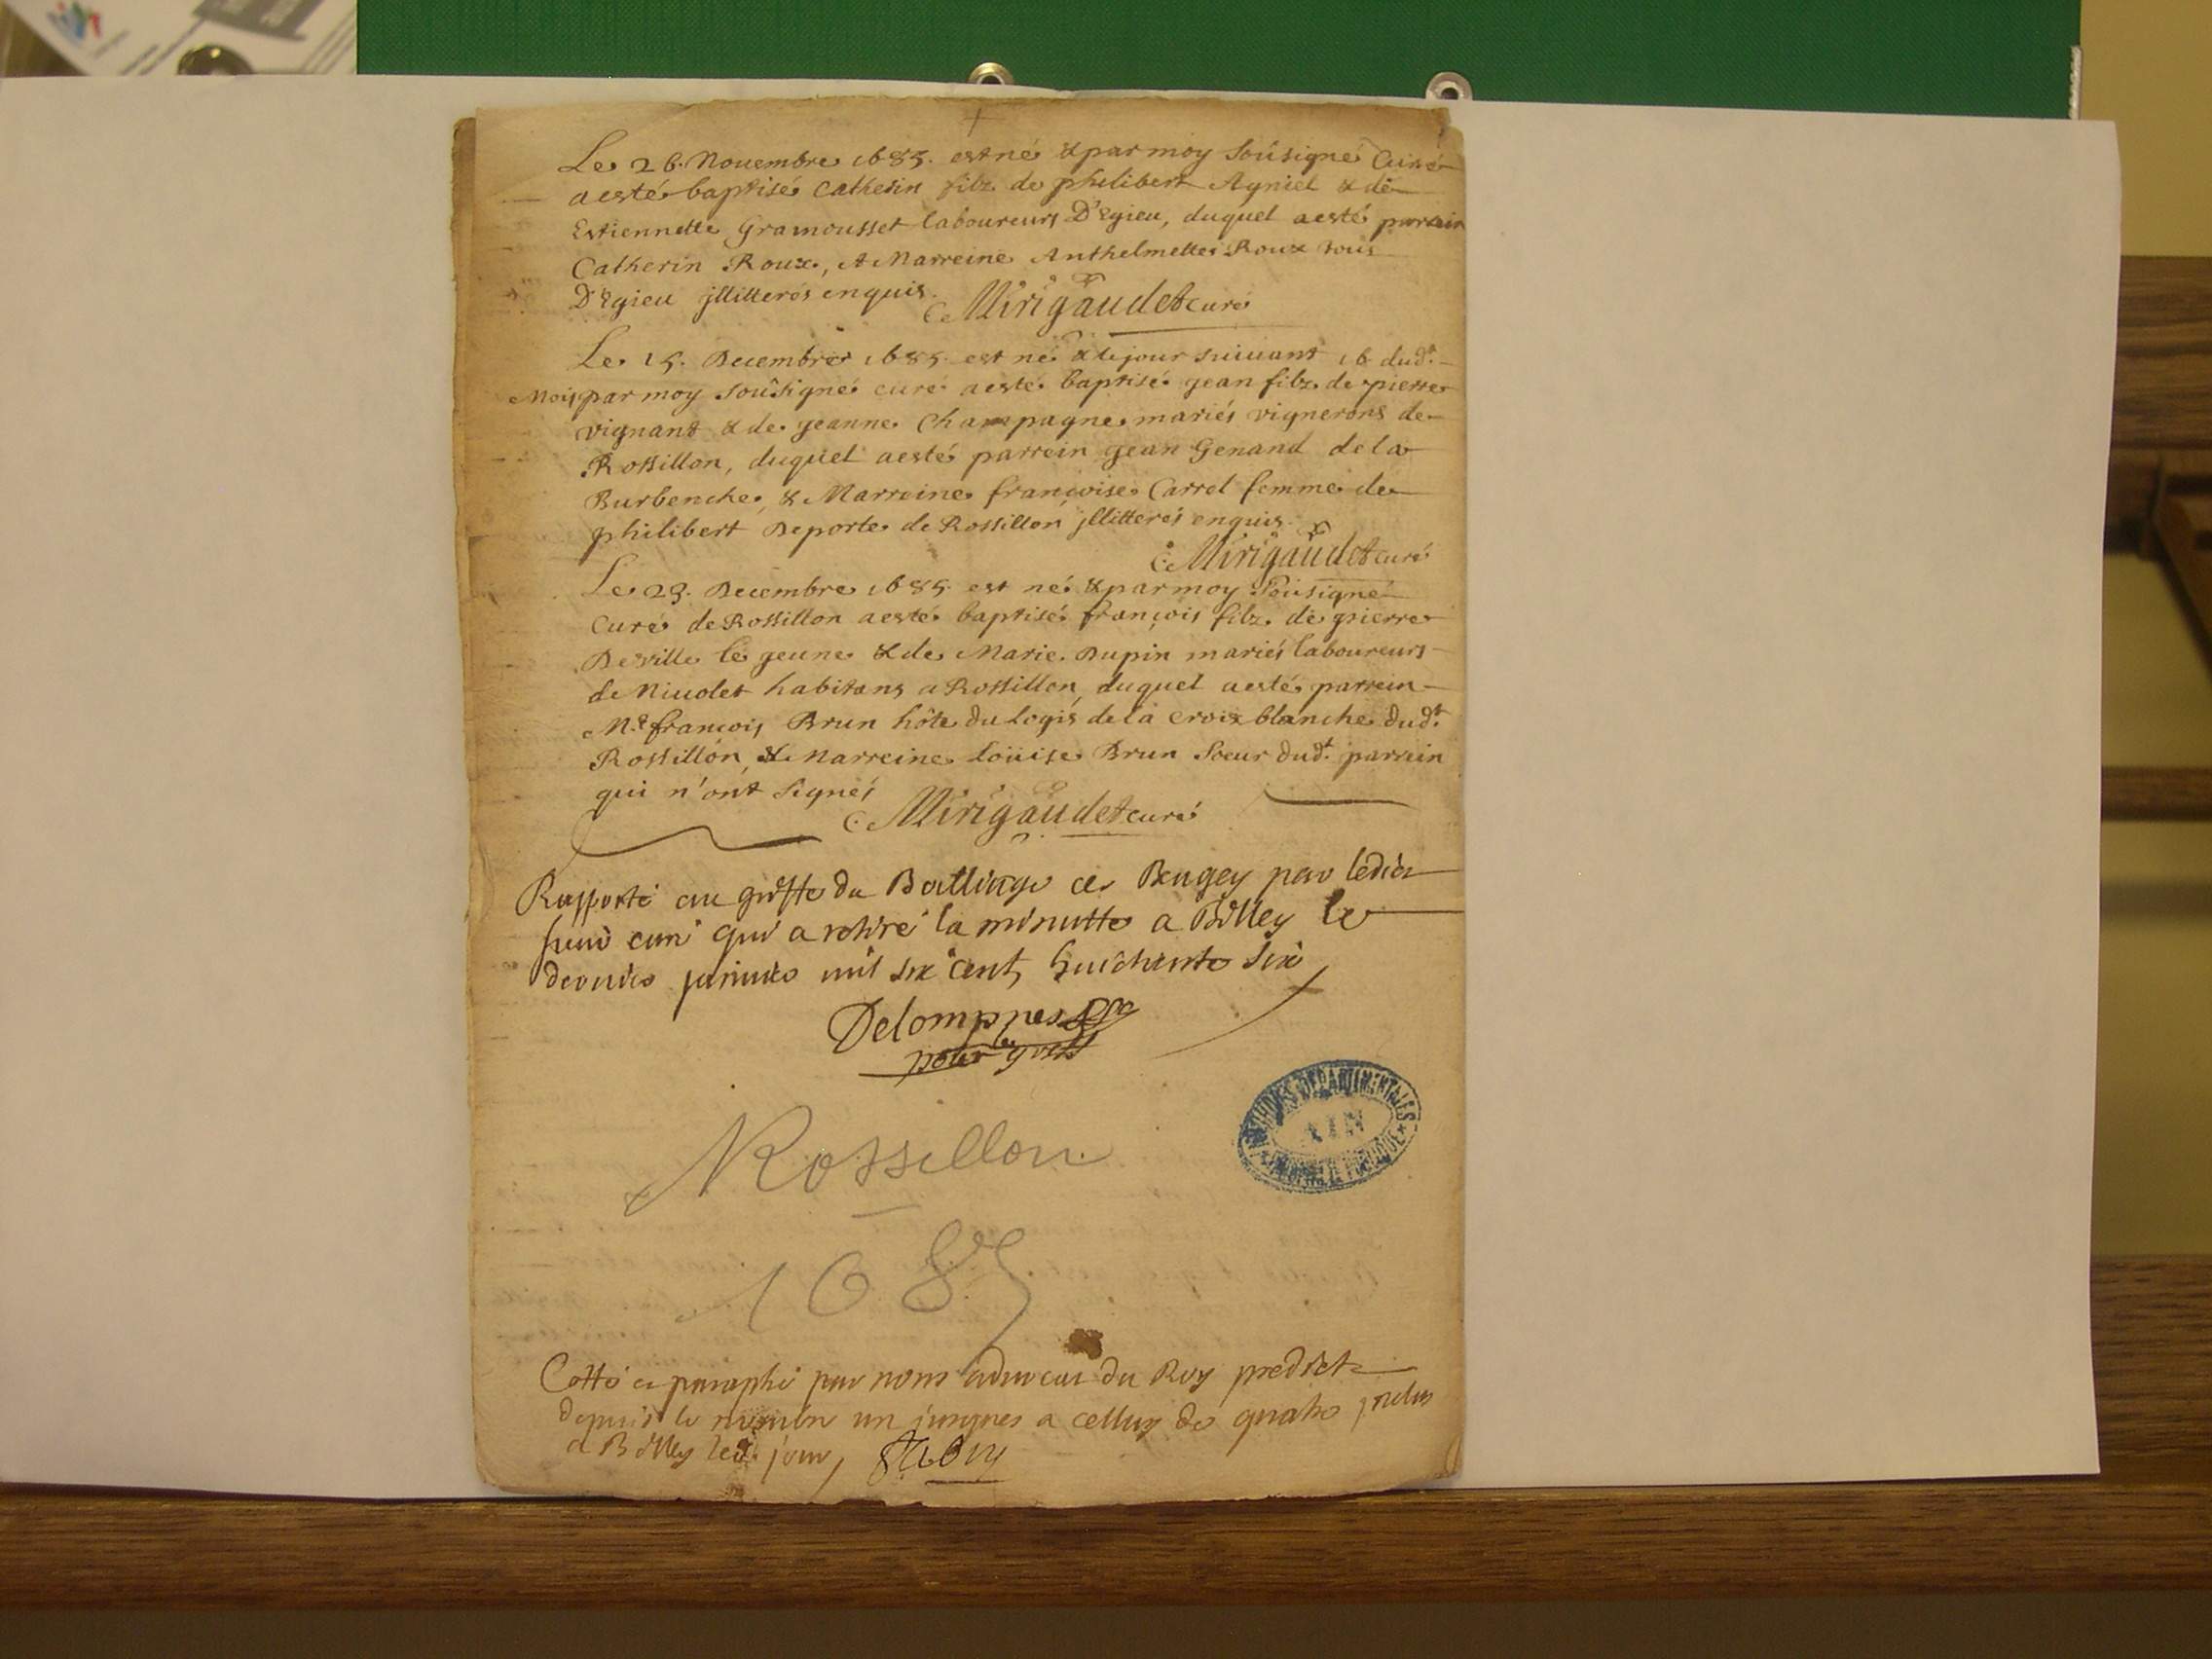 Le 26. Nouembre 1685. est né & par moy Soûsigné Curé
a esté baptisé Catherin filz de philibert Agniel & de
Estiennette Gramousset laboureurs D'Egieu, duquel a esté parrain
Catherin Roux, & Marreine Anthelmette Roux tous
D'Egieu jllitterés enquis.
C. Mirigaudet curé
Le 15. Decembre 1685. est né & le jour suiuant 16 dud.t
Mois par moy Soûsigné curé a esté baptisé jean filz de pierre
vignant & de jeanne Champagne mariés vignerons de
Rossillon, duquel a esté parrein jean Genand de la
Burbenche, & Marreine françoise Carrel femme de
philibert Deporte de Rossillon jllitterés enquis.
C. Mirigaudet curé
Le 23. Decembre 1685. est né & par moy Soûsigné
Curé de Rossillon a esté baptisé françois filz de pierre
Deville le jeune & de Marie Dupin mariés laboureurs
de Niuolet habitans a Rossillon, duquel a esté parrein
M.e françois Brun hôte du logis de la croix blanche dud.t
Rossillon, & Marreine Loüise Brun Soeur dud.t parrein
qui n'ont Signés
C. Mirigaudet curé
Rapporté au greffe du Bailliage de Beugey par ledict
sieur curé qui a retiré la minutte a Belley le
dernier januier mil six cent huictante six
Delompnes
pour le greff
ARCHIVES DÉPARTEMENTALES
AIN
Rossillon
1685
Cotté et paraphé par nous aduocat du Roy predict
depuis le numero un jusques a celluy de quatre inclus
a Belley led. jour,